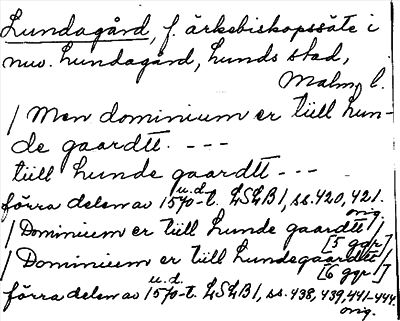 Lundagård, f. ärkebiskopssäte i
nuv. Lundagård, Lunds stad,
Malm. l.
/ Men dominium er tiill Lun-
de gaardtt. ---
tiill Lunde gaardtt ---
u.d.
förra delen av 1570-t. LSLB1, ss. 420, 421.
orig.
/ Dominium er tiill Lunde gaardtt /
[5 ggr]
/ Dominium er tiill Lundegaardtt /
[6 ggr]
u.d.
förra delen av 1570-t. LSLB1, ss. 438, 439, 441-444.
orig.